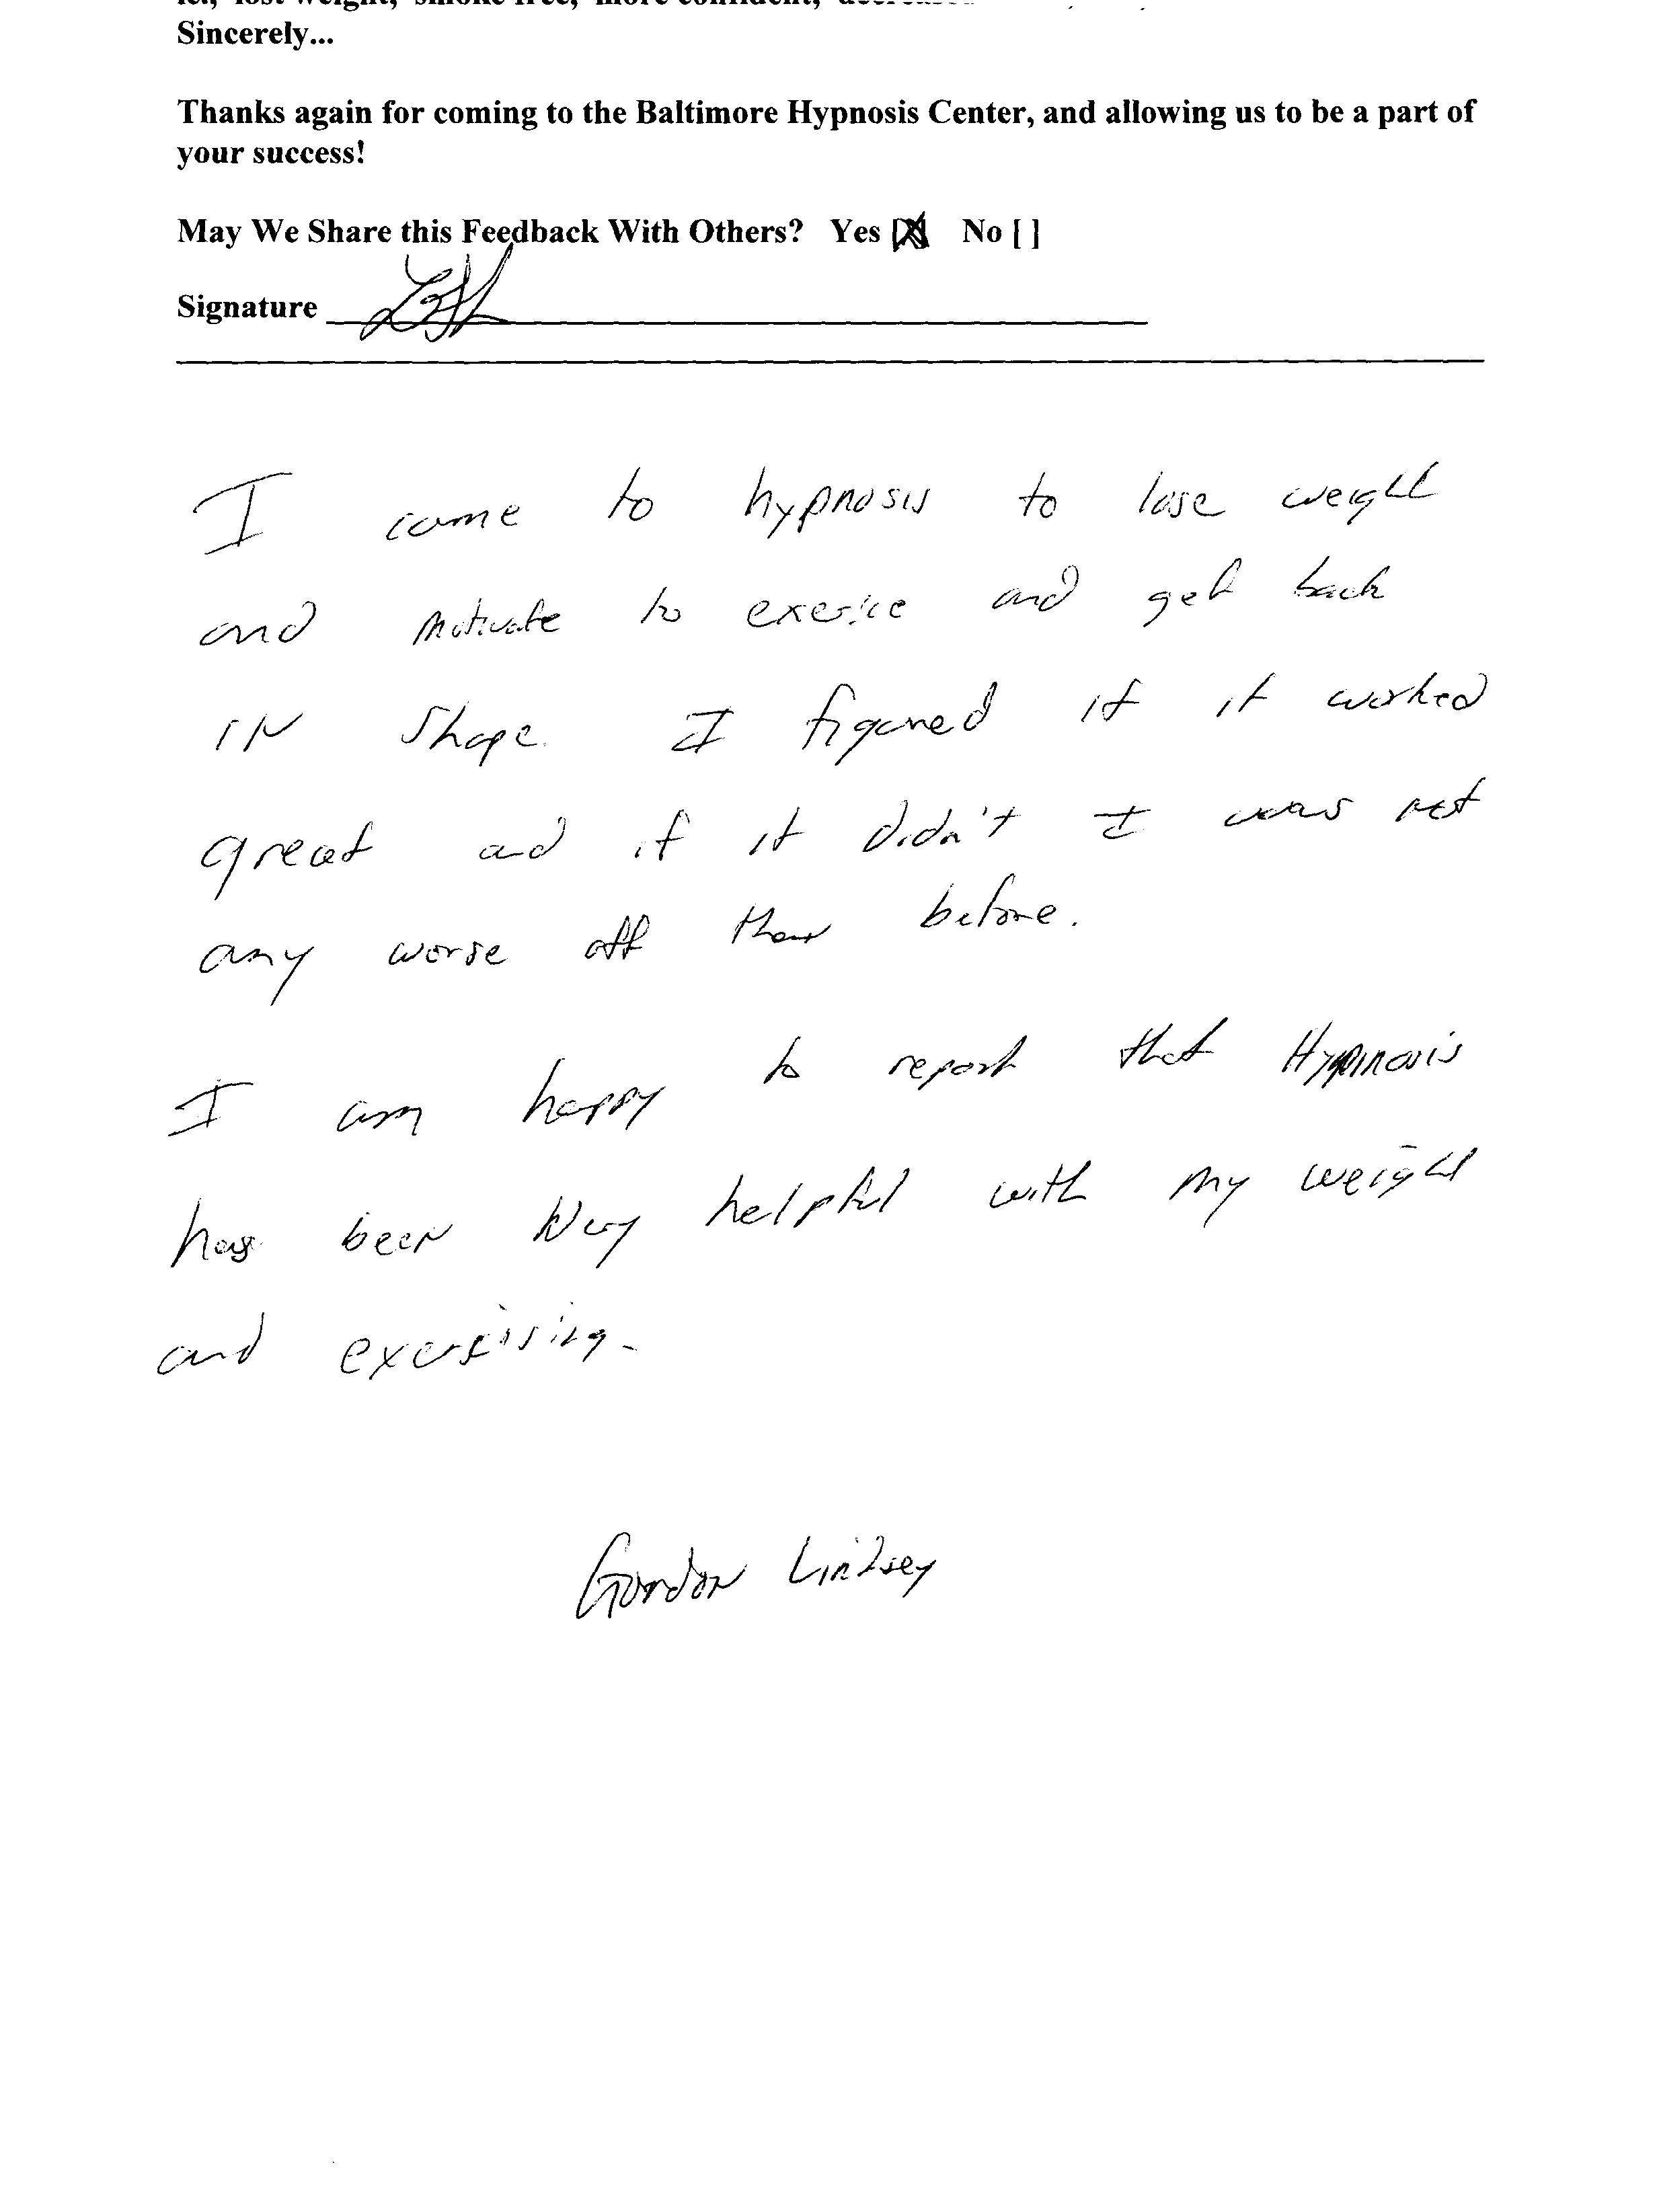 lost weight, smoke free, more confident,
Sincerely...
Thanks again for coming to the Baltimore Hypnosis Center, and allowing us to be a part of
your success!
May We Share this Feedback With Others? Yes [X] No [ ]
Signature
I came to hypnosis to lose weight
and motivate to exerice and get back
IN shape. I figured if it worked
great and if it didn't I was not
any worse off than before.
I am happy to report that Hypnosis
has been very helpful with my weight
and exercising.
Gordon Lindsey